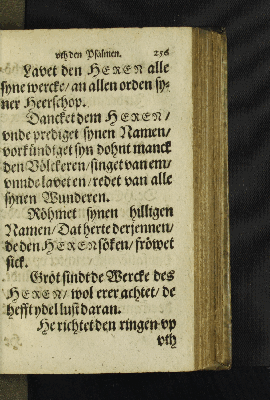 vth den Psalmen. 256
Lavet den HEREN alle
syne wercke/ an allen orden sy-
ner Heerschop.
Dancket dem HEREN/
vnde prediget synen Namen/
vorkündiget syn dohnt manck
den Völckeren/ singet van em/
vnnde lavet en/ redet van alle
synen Wunderen.
Röhmet synen hilligen
Namen/ Dat herte der jennen/
de den HEREN söken/ fröwet
sick.
Gröt sindt de Wercke des
HEREN/ wol erer achtet/ de
hefft ydel lust daran.
He richtet den ringen vp
vth